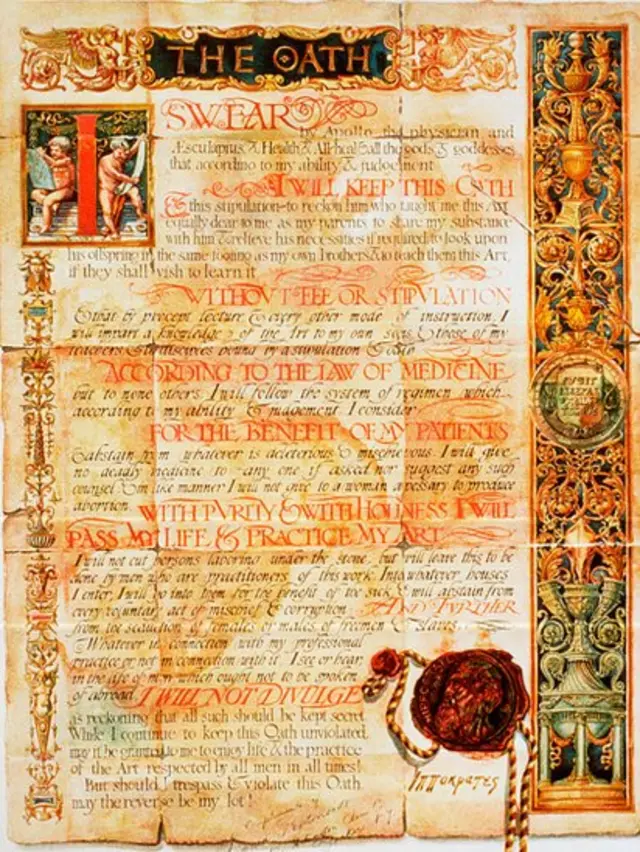 THE OATH
I SWEAR
by Apollo the physician and
Æsculapius, & Health & All-heal & all the gods & goddesses
that according to my ability & judgement
I WILL KEEP THIS OATH
& this stipulation-to reckon him who taught me this Art
equally dear to me as my parents to share my substance
with him & relieve his necessities if required to look upon
his offspring in the same footing as my own brothers & to teach them this Art,
if they shall wish to learn it
WITHOVT FEE OR STIPVLATION
& that by precept lecture & every other mode of instruction, I
will impart a knowledge of the Art to my own sons & those of my
teachers & to disciples bound by a stipulation & oath
ACCORDING TO THE LAW OF MEDICINE
but to none others. I will follow the system of regimen which
according to my ability & judgement I consider
FOR THE BENEFIT OF MY PATIENTS
& abstain from whatever is deleterious & mischievous. I will give
no deadly medicine to any one if asked nor suggest any such
counsel & in like manner I will not give to a woman a pessary to produce
abortion. WITH PVRITY & WITH HOLINESS I WILL
PASS MY LIFE & PRACTICE MY ART
I will not cut persons laboring under the stone, but will leave this to be
done by men who are practitioners of this work. Into whatever houses
I enter, I will go into them for the benefit of the sick & will abstain from
every voluntary act of mischief & corruption AND FVRTHER
from the seduction of females or males of freemen & slaves.
Whatever in connection with my professional
practice or not in connection with it, I see or hear,
in the life of men which ought not to be spoken
of abroad I WILL NOT DIVULGE
as reckoning that all such should be kept secret.
While I continue to keep this Oath unviolated,
may it be granted to me to enjoy life & the practice
of the Art respected by all men in all times!
But should I trespass & violate this Oath,
may the reverse be my lot!
Ιπποκρατες